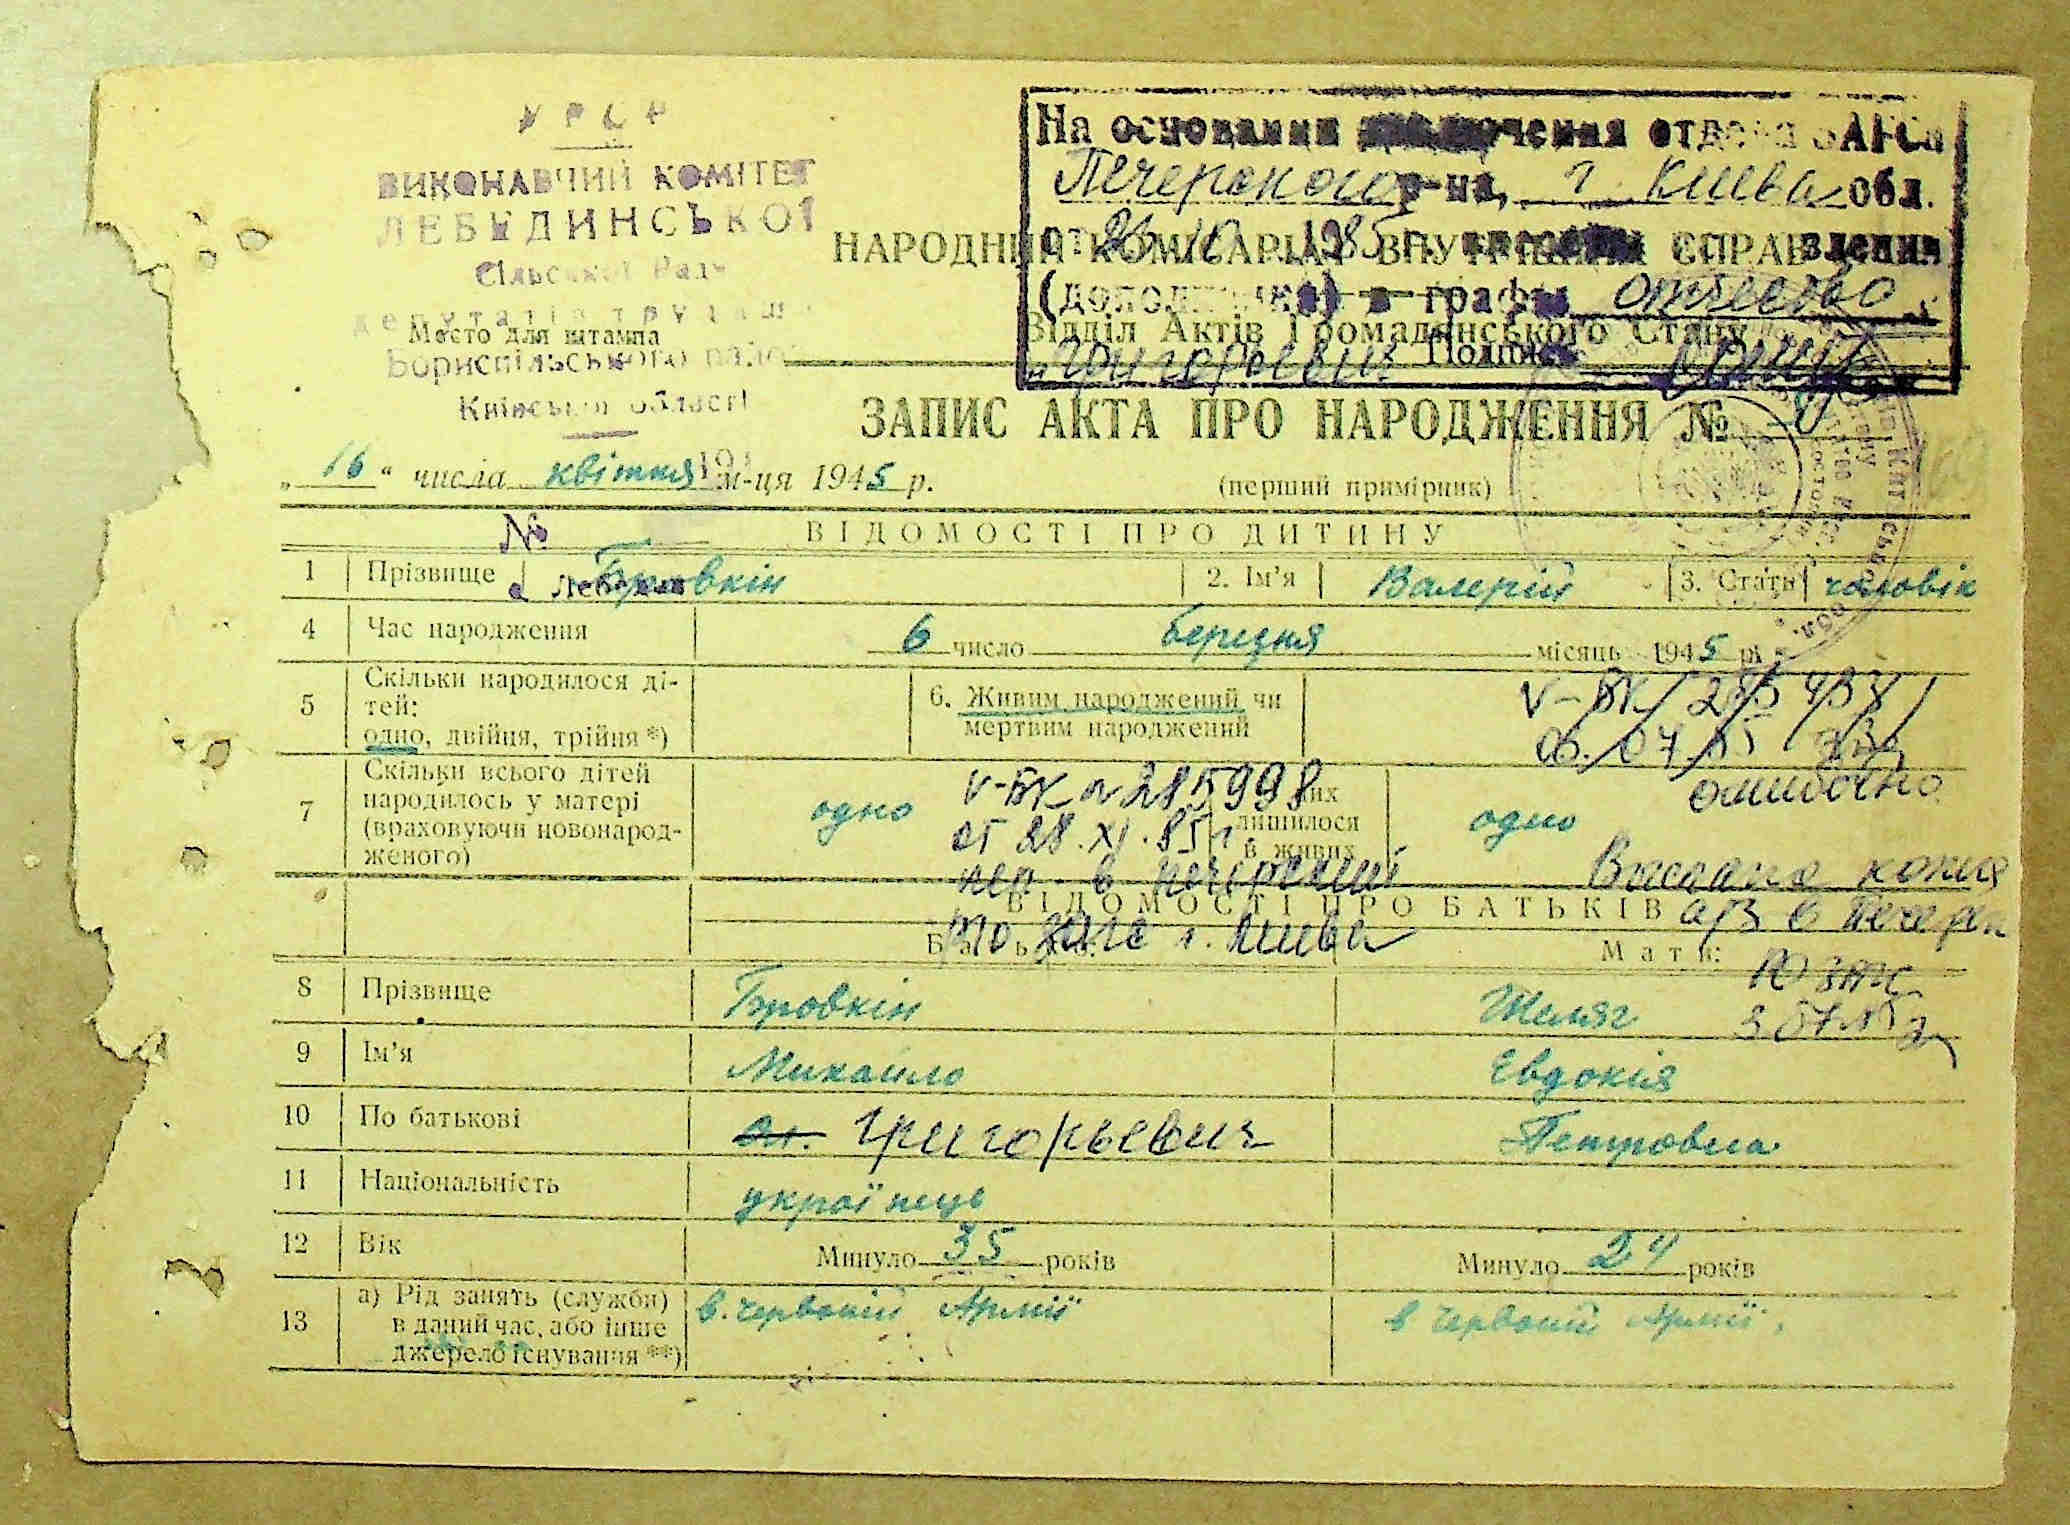 УРСР
ВИКОНАВЧИЙ КОМІТЕТ
ЛЕБЕДИНСЬКОЇ
Сільської Ради
депутатів трудящ
Место для штампа
Бориспільського
Київської області
На основании заключения отдела ЗАГСа
Печерского р-на, г. Киева обл.
от 1985 г.
(дополнения) в графы отчество
"Григорьевич Подпись
НАРОДНИЙ КОМІСАРІАТ ВНУТРІШНІХ СПРАВ
Відділ Актів Громадянського Стану
ЗАПИС АКТА ПРО НАРОДЖЕННЯ № 9
„16“ числа квітня м-ця 1945 р.
(перший примірник)
№
ВІДОМОСТІ ПРО ДИТИНУ
1 Прізвище Бровкін 2. Ім'я Валерій 3. Стать чоловік
4 Час народження 6 число березня місяць 1945 р.
5 Скільки народилося ді-
тей:
одно, двійня, трійня *)
6. Живим народжений чи
мертвим народжений
ошибочно
7 Скільки всього дітей
народилось у матері
(враховуючи новонарод-
женого)
одно
них
лишилося
в живих
одно
V-БК № 285998
от 28.XI.85 г.
в печерский
г. Киева
Выслана копия
а/з в Печерск.
ВІДОМОСТІ ПРО БАТЬКІВ
Батько:
Мати:
8 Прізвище Бровкін Шеляг
9 Ім'я Михайло Євдокія
10 По батькові Григорьевич Петровна
11 Національність українець
12 Вік Минуло 35 років Минуло 24 років
13 а) Рід занять (служби)
в даний час, або інше
джерело існування **)
в. Червоній Армії
в Червоній Армії.